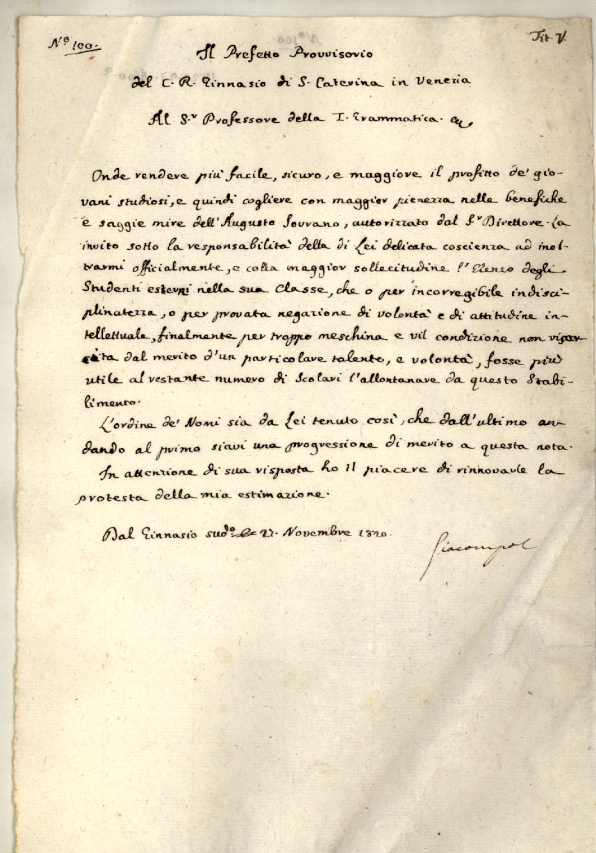 Nº 100.
Tit. V.
Il Prefetto Provvisorio
del C. R. Ginnasio di S. Caterina in Venezia
Al S.r Professore della I. Grammatica.
Onde rendere più facile, sicuro, e maggiore il profitto de' gio-
vani studiosi, e quindi cogliere con maggior pienezza nelle benefiche
e saggie mire dell'Augusto Sovrano, autorizzato dal S.r Direttore La
invito sotto la responsabilità della di Lei delicata coscienza ad inol-
trarmi officialmente, e colla maggior sollecitudine l'Elenco degli
Studenti esterni nella sua Classe, che o per incorregibile indisci-
plinatezza, o per provata negazione di volontà e di attitudine in-
tellettuale, finalmente per troppo meschina e vil condizione non
dal merito d'un particolare talente, e volontà, fosse più
utile al restante numero di Scolari l'allontanare da questo Stabi-
limento.
L'ordine de' Nomi sia da Lei tenuto così, che dall'ultimo an-
dando al primo siavi una progressione di merito a questa nota.
In attenzione di sua risposta ho il piacere di rinnovarle la
protesta della mia estimazione.
Dal Ginnasio sudº 27. Novembre 1820.